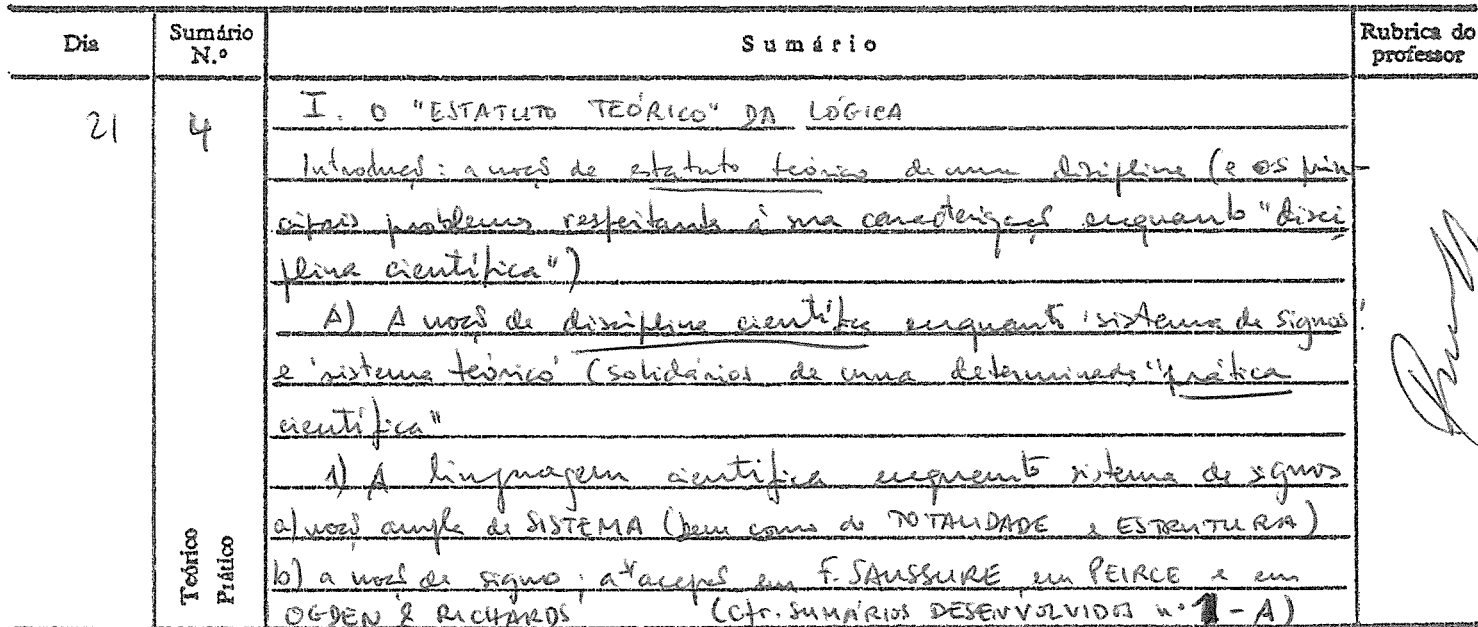 Dia Sumário N.º Sumário Rubrica do professor
21 4 I. O "ESTATUTO TEÓRICO" DA LÓGICA
Introdução: a noção de estatuto teórico de uma disciplina (e os prin-
cipais problemas respeitante à sua caracterização enquanto "disci
plina científica")
A) A noção de disciplina científica enquanto 'sistema de signos'
e 'sistema teórico' (solidários de uma determinada "prática
científica"
1) A linguagem científica enquanto sistema de signos
a) noção ampla de SISTEMA (bem como de TOTALIDADE e ESTRUTURA)
b) a noção de signo; acepção em F. SAUSSURE em PEIRCE e em
OGDEN & RICHARDS (Cfr. SUMÁRIOS DESENVOLVIDOS nº 1 - A)
Teórico
Prático